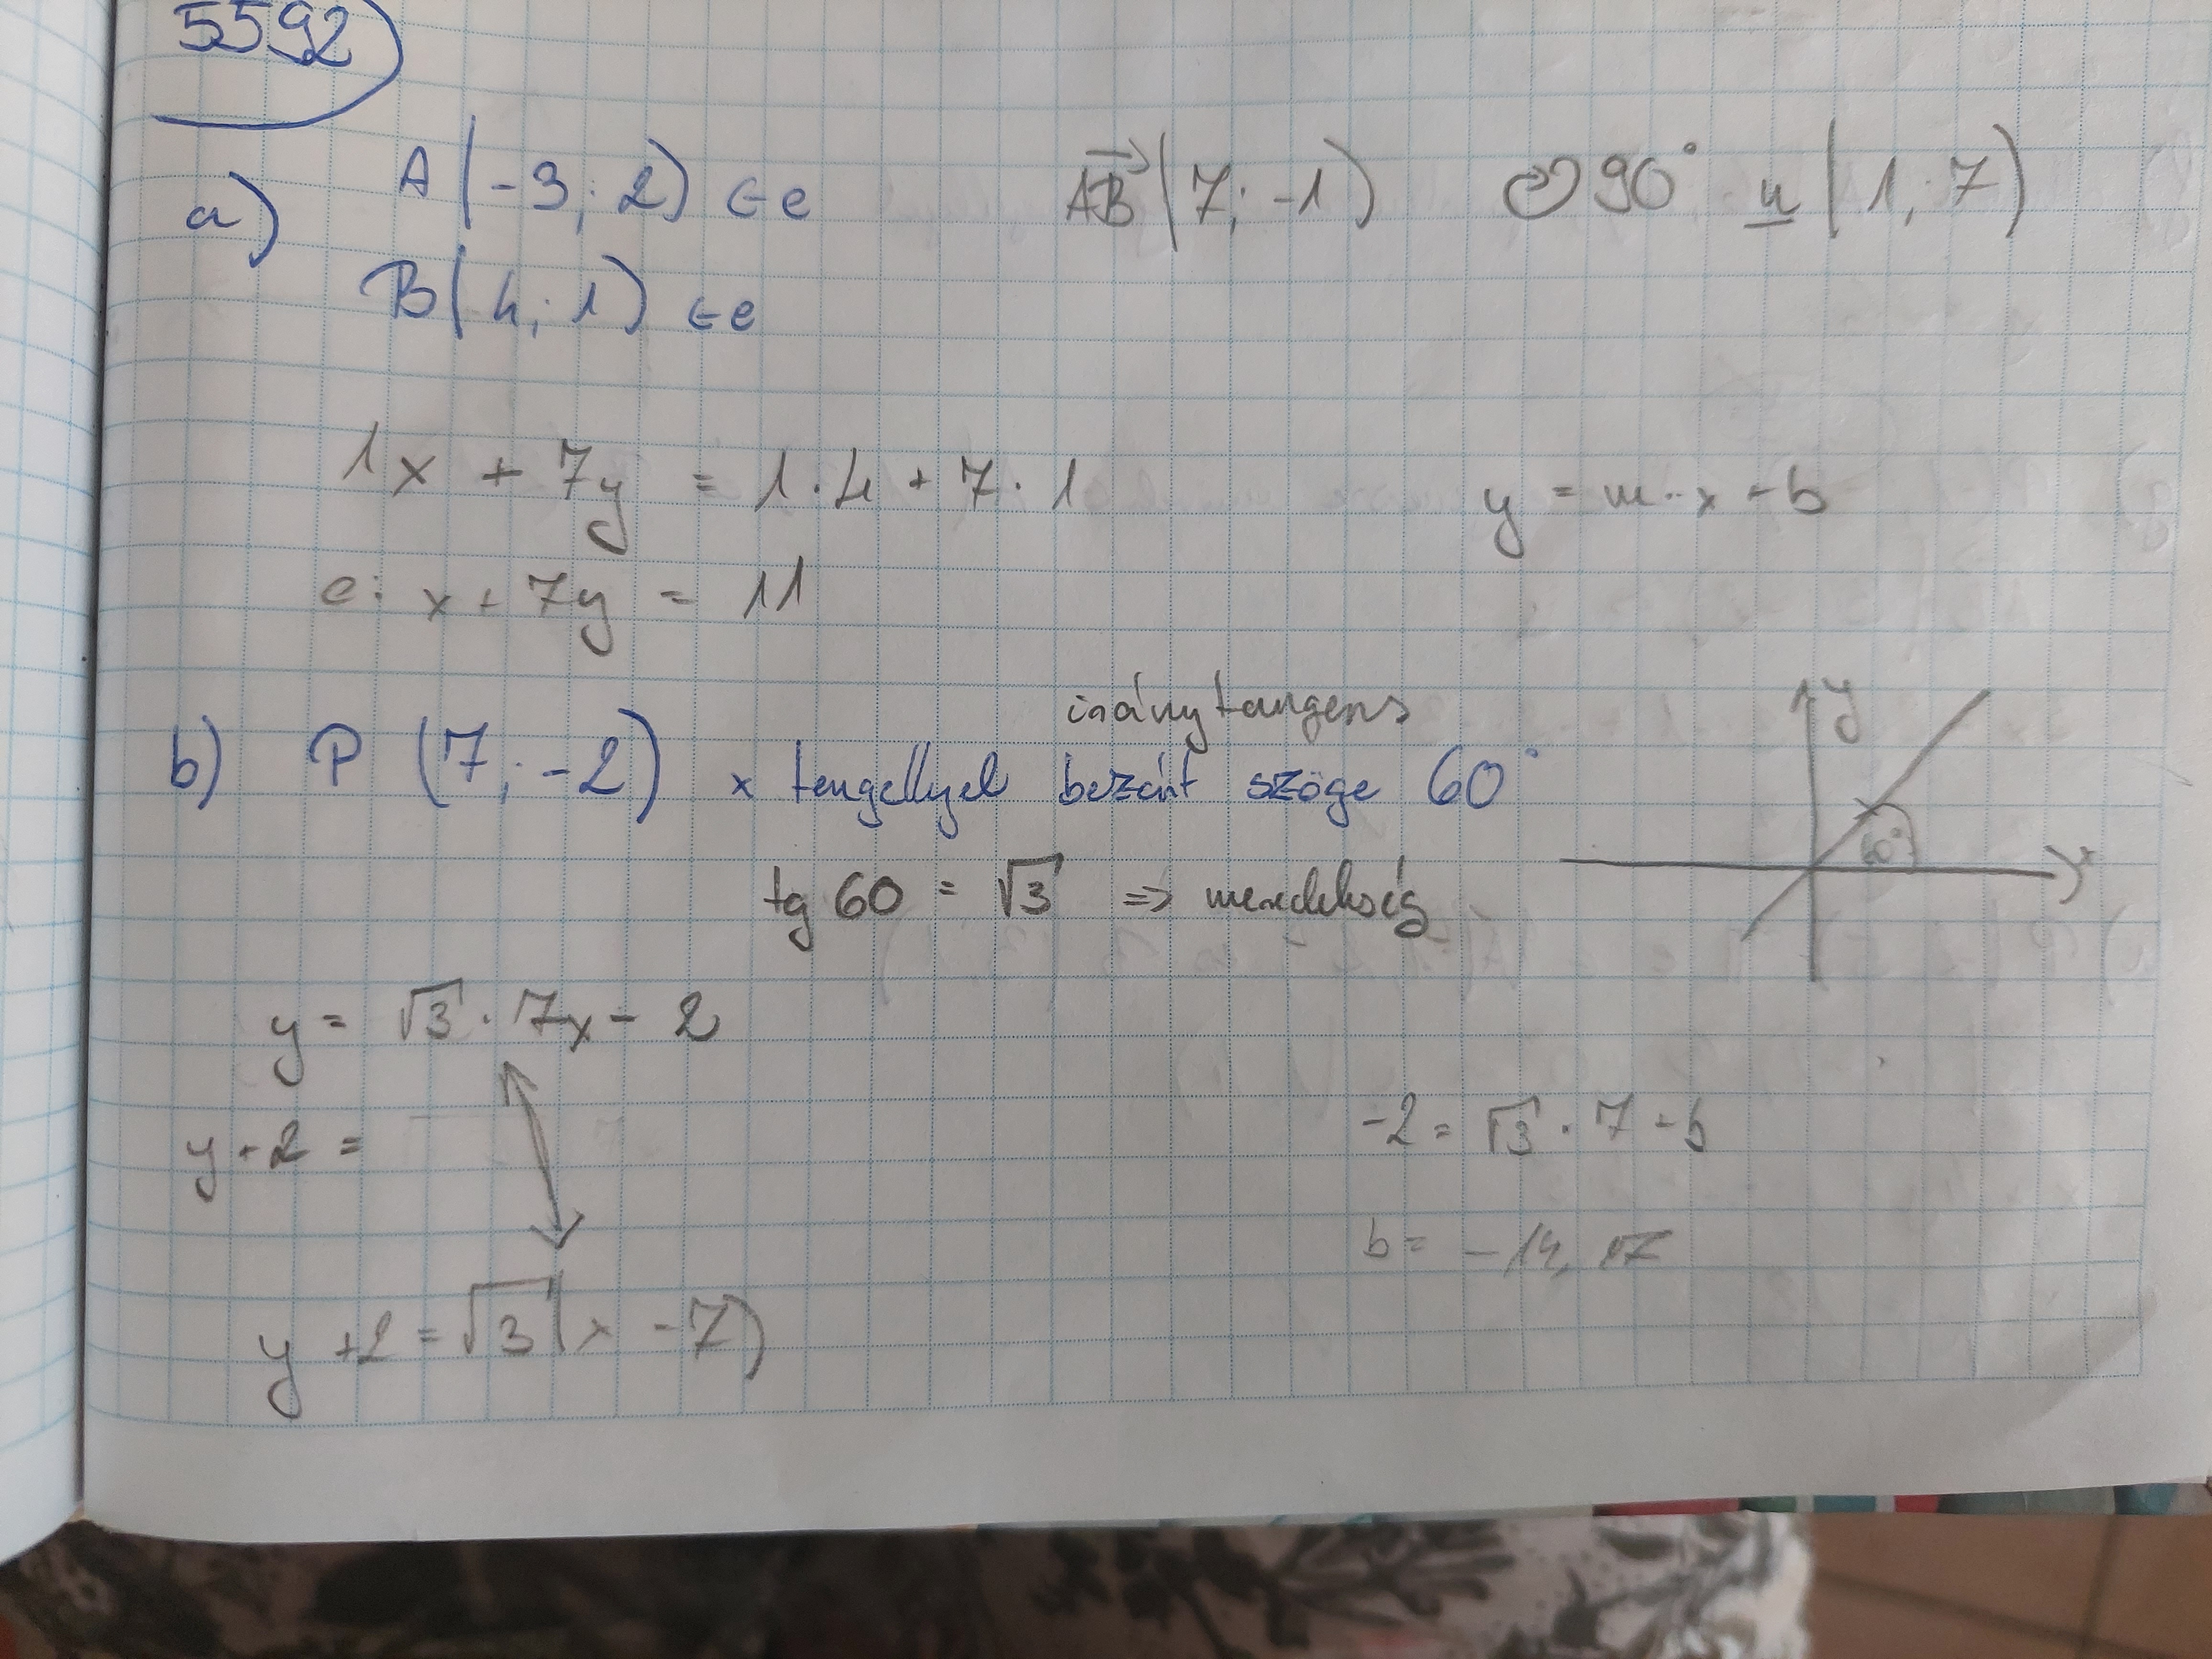 5592
a) A(-3; 2) ∈ e
B(4; 1) ∈ e
AB(7; -1) ↻ 90° n(1; 7)
1x + 7y = 1·4 + 7·1
y = m·x + b
e: x + 7y = 11
iránytangens
b) P (7; -2) x tengellyel bezárt szöge 60°
tg 60 = √3 => meredekség
y
60°
x
y = √3 · 7x - 2
y + 2 =
y + 2 = √3(x - 7)
-2 = √3 · 7 + b
b = -14,